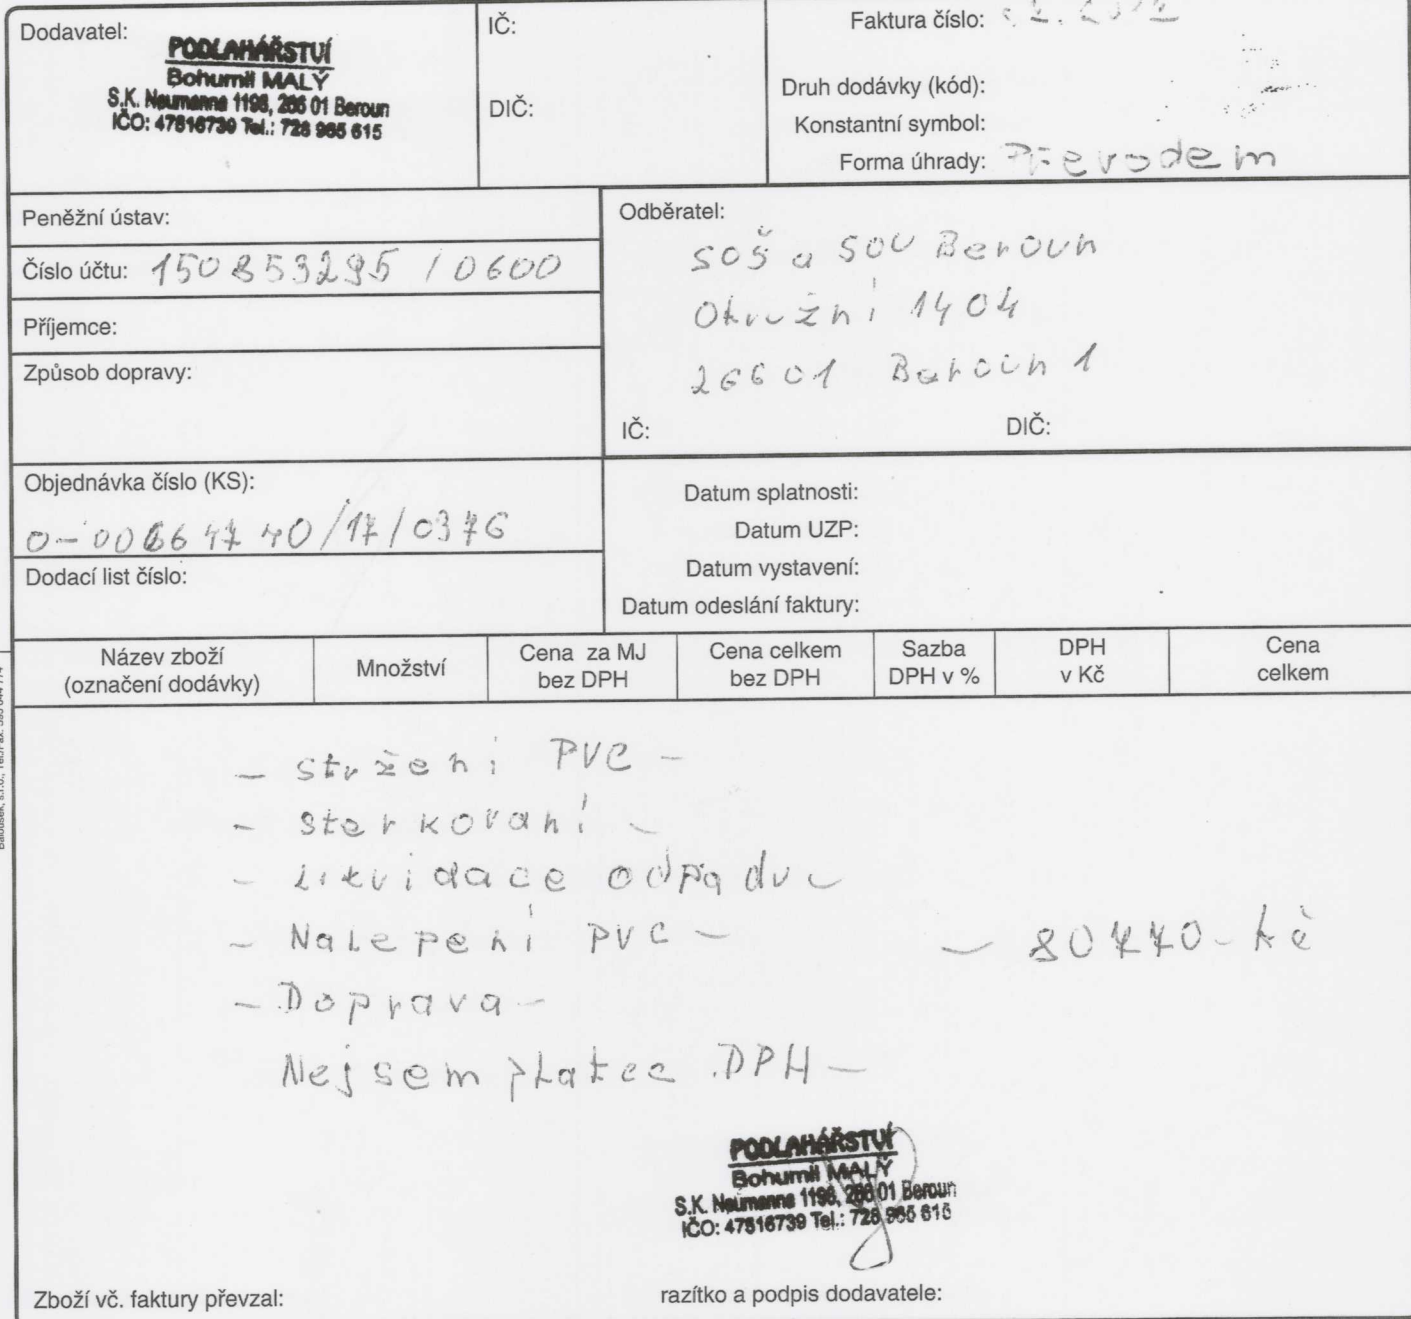 Dodavatel:
PODLAHÁŘSTVÍ
Bohumil MALÝ
S.K. Neumanna 1198, 266 01 Beroun
IČO: 47516739 Tel.: 728 965 615
IČ:
DIČ:
Faktura číslo:
Druh dodávky (kód):
Konstantní symbol:
Forma úhrady: Převodem
Peněžní ústav:
Číslo účtu: 150853295 / 0600
Příjemce:
Způsob dopravy:
Odběratel:
SOŠ a SOU Beroun
Okružní 1404
26601 Beroun 1
IČ: DIČ:
Objednávka číslo (KS):
0-00664740/17/0376
Dodací list číslo:
Datum splatnosti:
Datum UZP:
Datum vystavení:
Datum odeslání faktury:
Název zboží (označení dodávky)
Množství
Cena za MJ bez DPH
Cena celkem bez DPH
Sazba DPH v %
DPH v Kč
Cena celkem
- stržení PVC -
- sterkování -
- Likvidace odpadu -
- Nalepení PVC - - 80770- kč
- Doprava -
Nejsem platce DPH -
PODLAHÁŘSTVÍ
Bohumil MALÝ
S.K. Neumanna 1198, 266 01 Beroun
IČO: 47516739 Tel.: 728 965 615
Zboží vč. faktury převzal:
razítko a podpis dodavatele: